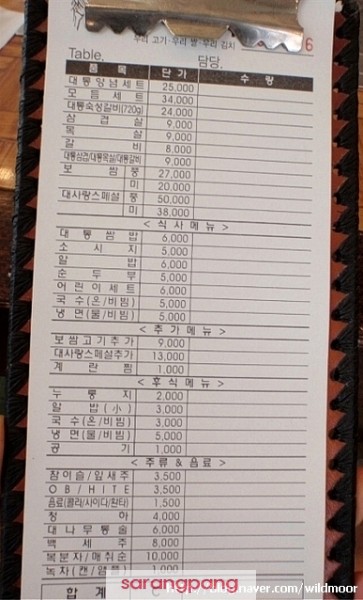 우리 고기·우리 쌀·우리 김치
6
Table. 담당.
품목 단가 수량
대통양념세트 25,000
모듬세트 34,000
대통숙성갈비(720g) 24,000
삼겹살 9,000
목살 9,000
갈비 8,000
대통삼겹/대통목살/대통갈비 9,000
보쌈 풍 27,000
미 20,000
대사랑스페셜 풍 50,000
미 38,000
< 식사메뉴 >
대통쌈밥 6,000
소시지 5,000
알밥 6,000
순두부 5,000
어린이세트 6,000
국수(온/비빔) 5,000
냉면(물/비빔) 5,000
< 추가메뉴 >
보쌈고기추가 9,000
대사랑스페셜추가 13,000
계란찜 1,000
< 후식메뉴 >
누룽지 2,000
알밥(小) 3,000
국수(온/비빔) 3,000
냉면(물/비빔) 5,000
공기 1,000
< 주류 & 음료 >
참이슬/잎새주 3,500
OB/HITE 3,500
음료(콜라/사이다/환타) 1,500
청하 4,000
대나무통술 6,000
백세주 8,000
복분자/매취순 10,000
녹차(캔/앰플) 1,000
합계
sarangpang
naver.com/wildmoor